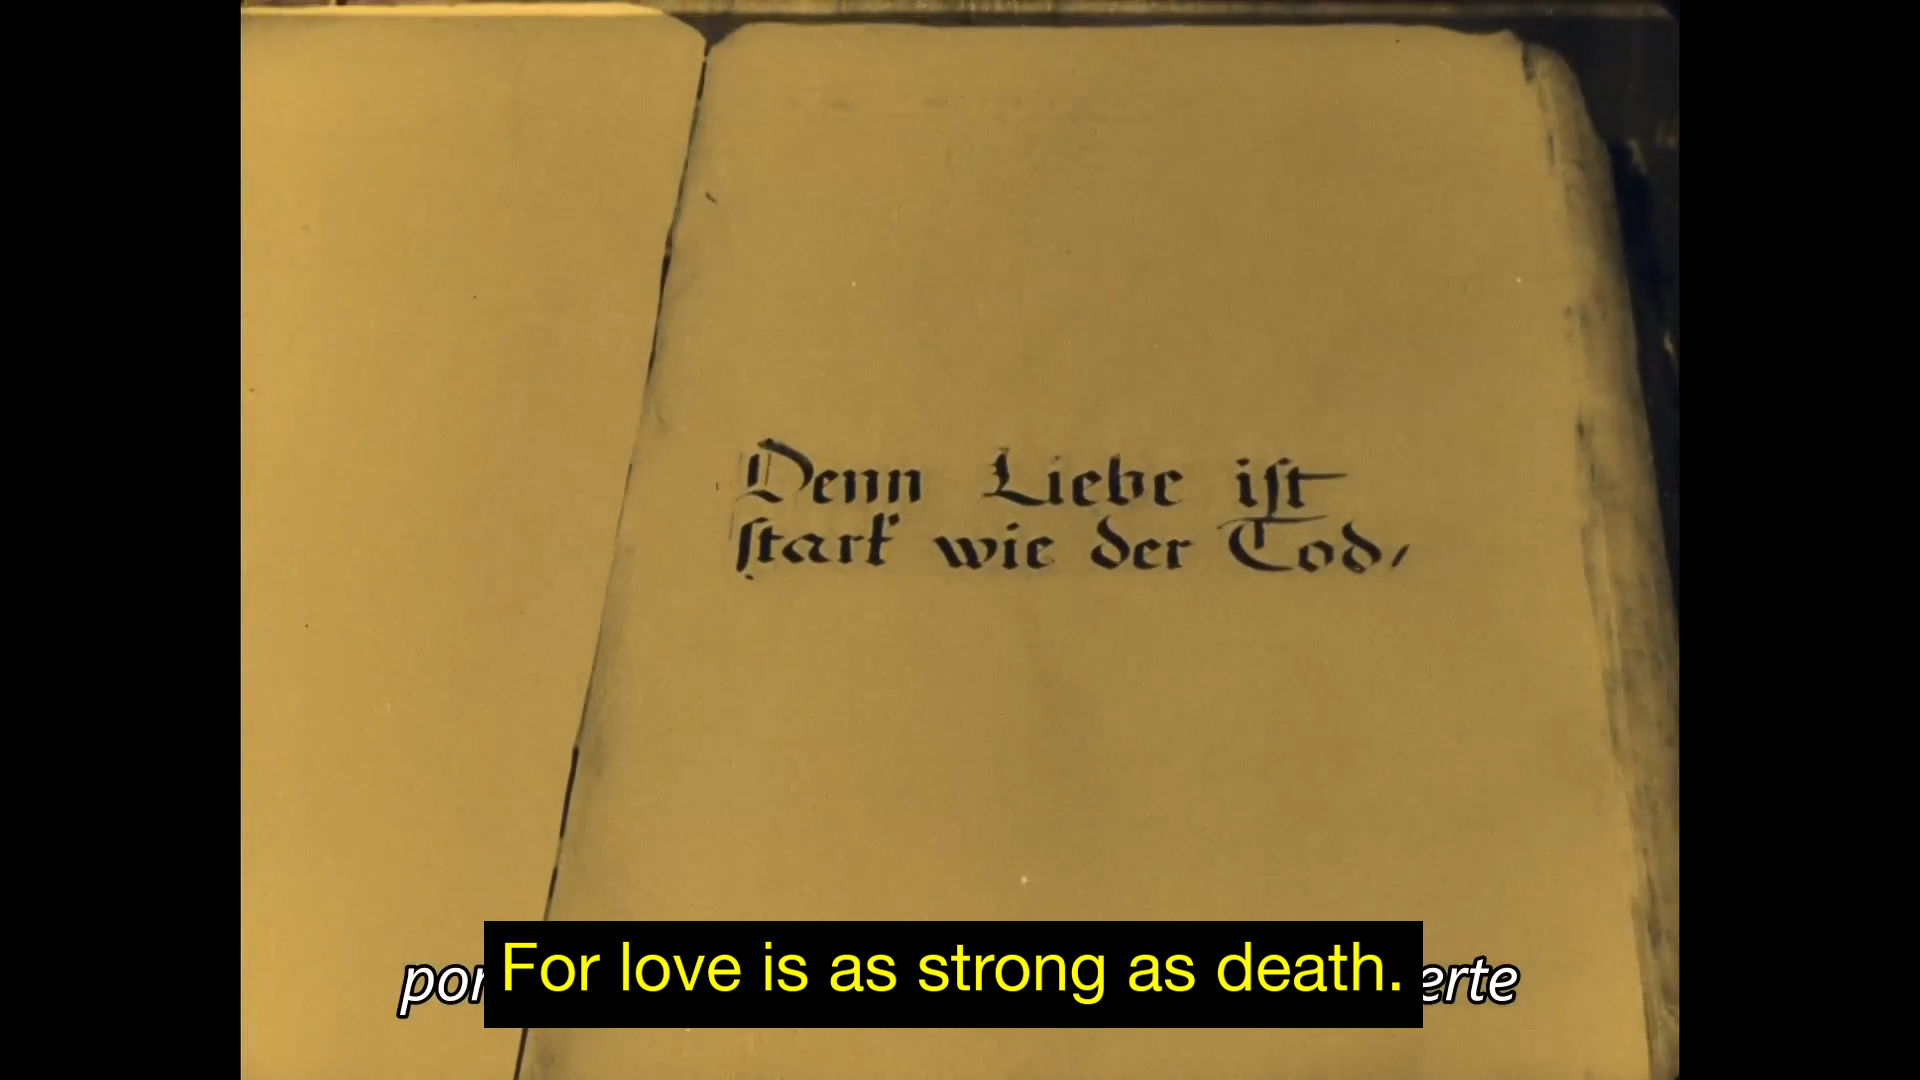 Denn Liebe ist
stark wie der Tod,
For love is as strong as death.